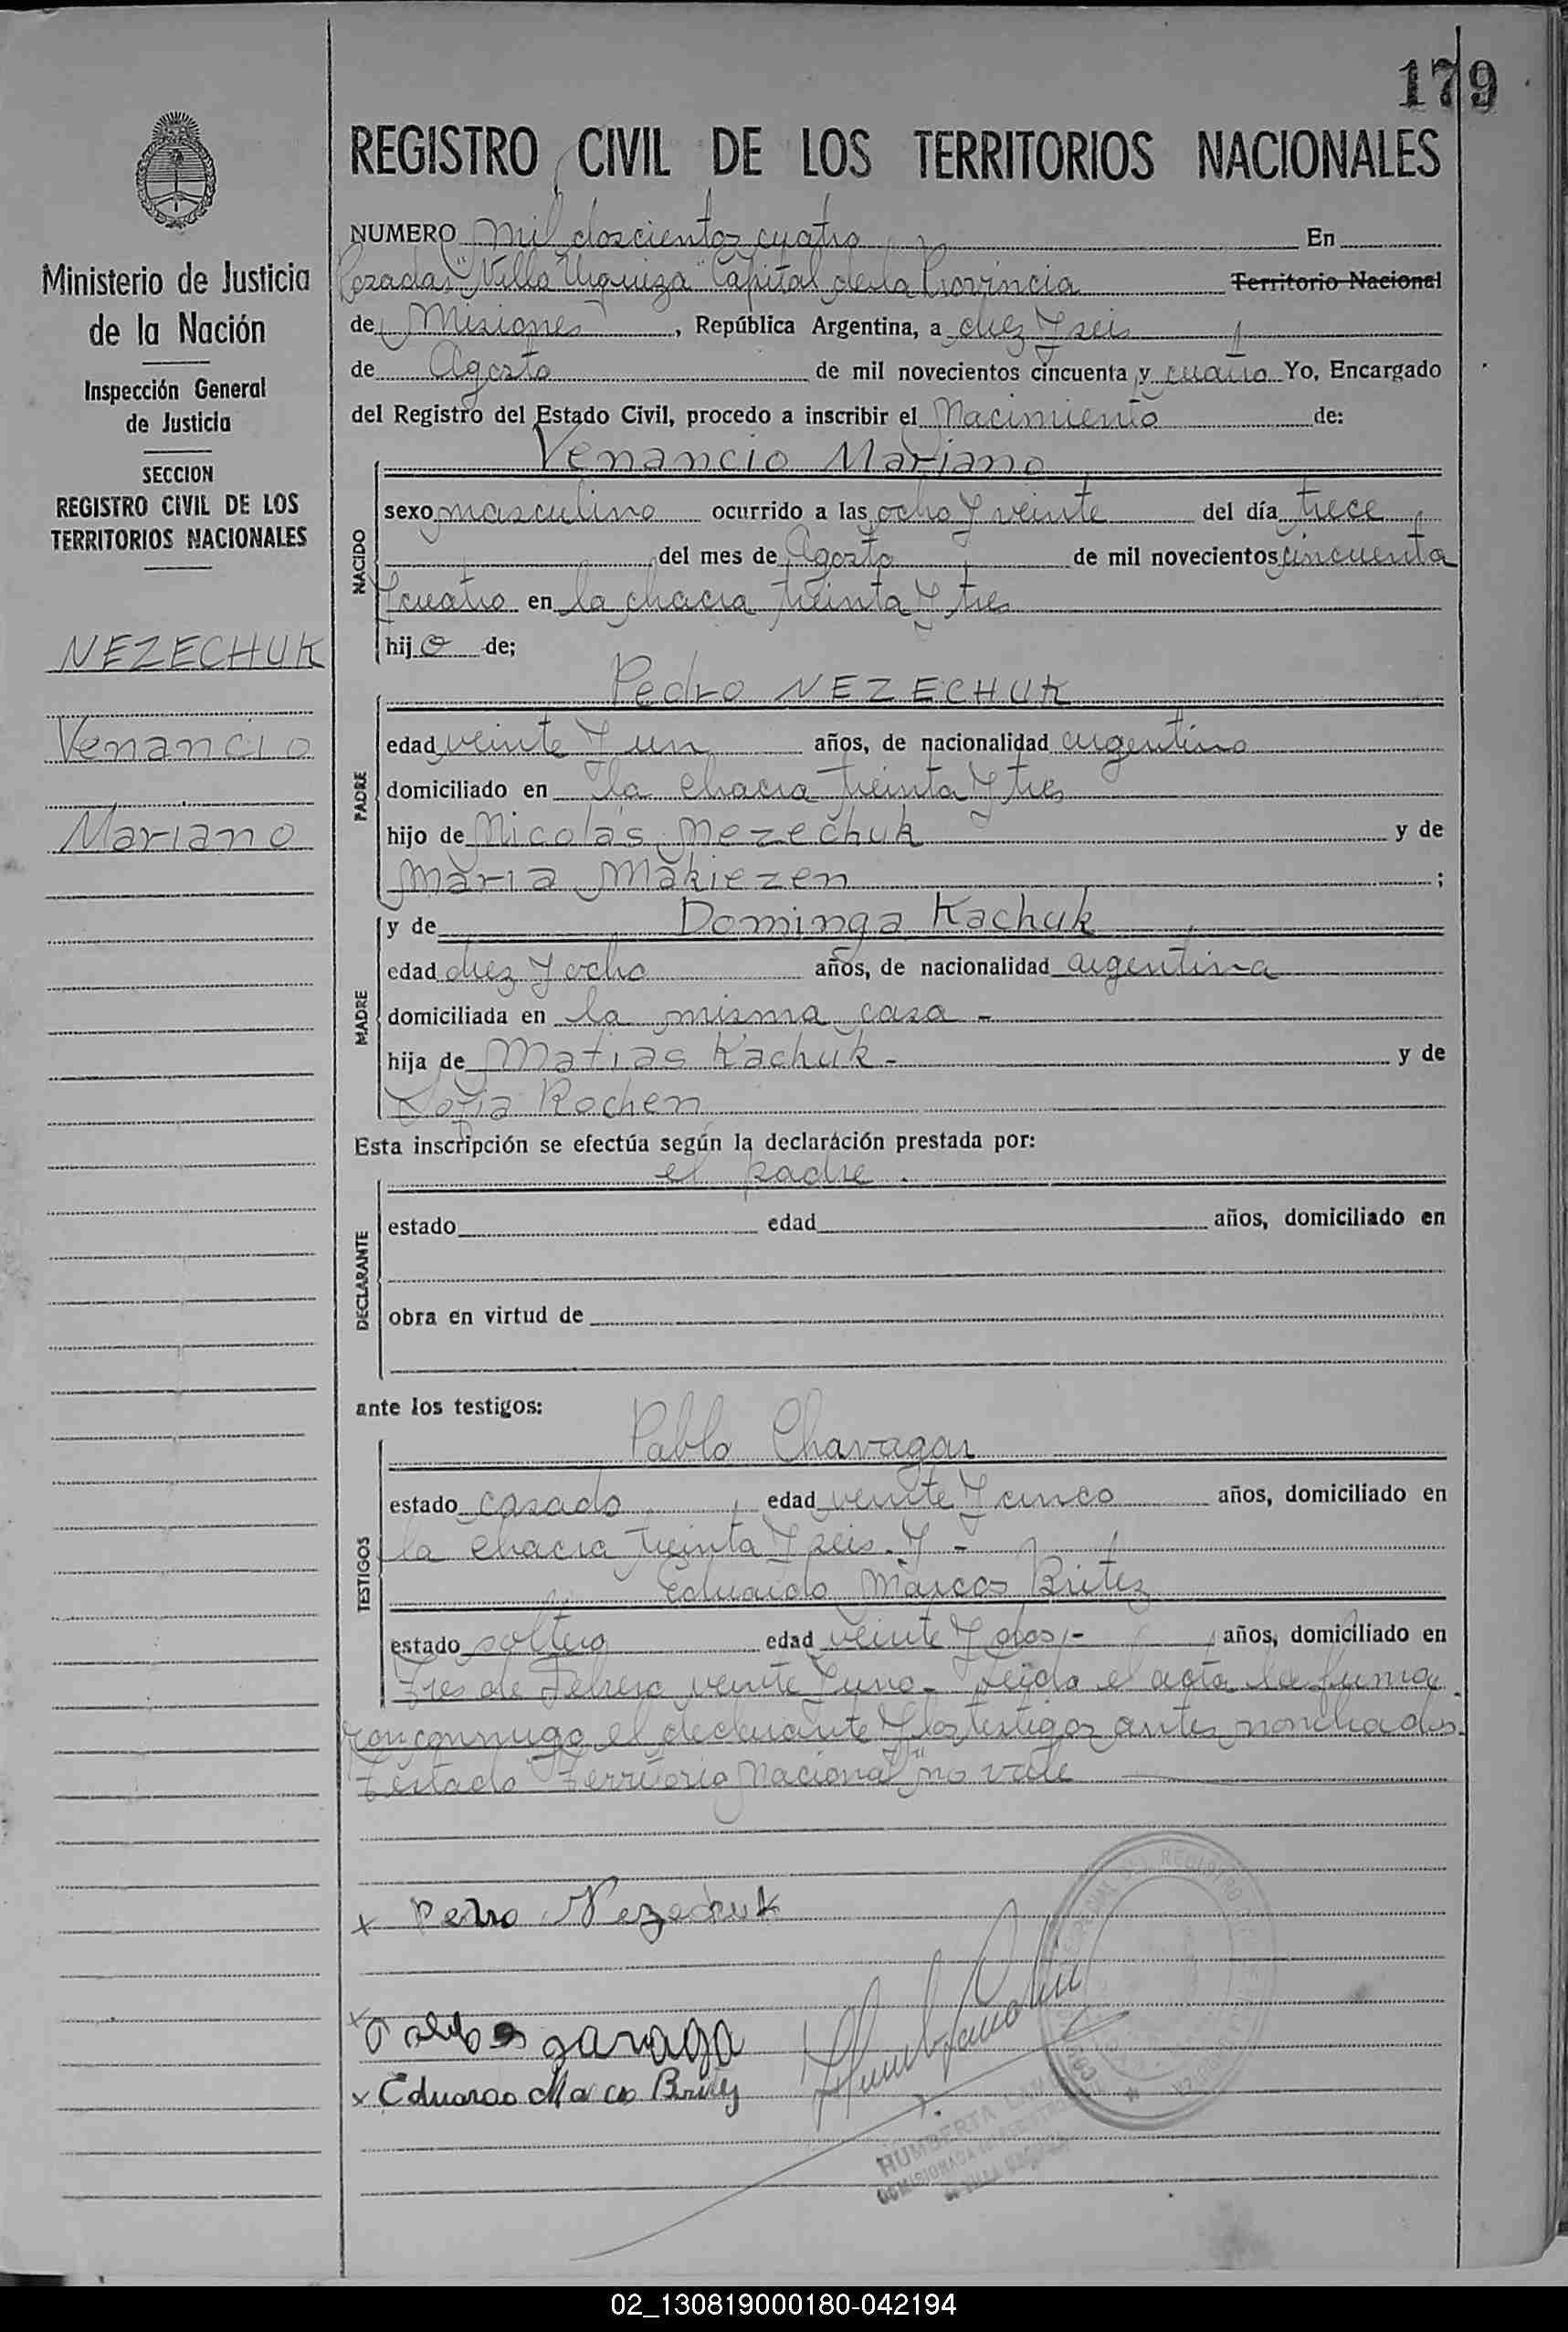 179
REGISTRO CIVIL DE LOS TERRITORIOS NACIONALES
Ministerio de Justicia
de la Nación
Inspección General
de Justicia
SECCION
REGISTRO CIVIL DE LOS
TERRITORIOS NACIONALES
NEZECHUK
Venancio
Mariano
NUMERO Mil doscientos cuatro En
Posadas "Villa Urquiza" Capital de la Provincia Territorio Nacional
de Misiones, República Argentina, a diez y seis
de Agosto de mil novecientos cincuenta y cuatro Yo, Encargado
del Registro del Estado Civil, procedo a inscribir el Nacimiento de:
Venancio Mariano
NACIDO
sexo masculino ocurrido a las ocho y veinte del día trece
del mes de Agosto de mil novecientos cincuenta
y cuatro en la chacra treinta y tres
hijo de;
Pedro NEZECHUK
PADRE
edad veinte y un años, de nacionalidad argentino
domiciliado en la chacra treinta y tres
hijo de Nicolás Nezechuk y de
María Makiezen ;
MADRE
y de Dominga Kachuk
edad diez y ocho años, de nacionalidad argentina
domiciliada en la misma casa -
hija de Matias Kachuk - y de
Sofia Rochen
Esta inscripción se efectúa según la declaración prestada por:
el padre .
DECLARANTE
estado edad años, domiciliado en
obra en virtud de
ante los testigos:
Pablo Chavagar
TESTIGOS
estado casado edad veinte y cinco años, domiciliado en
la chacra treinta y seis. y -
Eduardo Marcos Britez
estado soltero edad veinte y dos,- años, domiciliado en
Tres de Febrero veinte y uno - Leída el acta la firma
con conmigo el declarante y los testigos antes nombrados.
Testado "Territorio Nacional" no vale
x Pedro Nezechuk
x
x Eduardo Marcos Britez
HUMBERTA
02_130819000180-042194